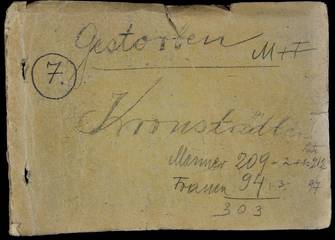 Gestorben
M+F
7.
Männer 209 - 2+1= 212
Frauen 94 - 3. 97
303